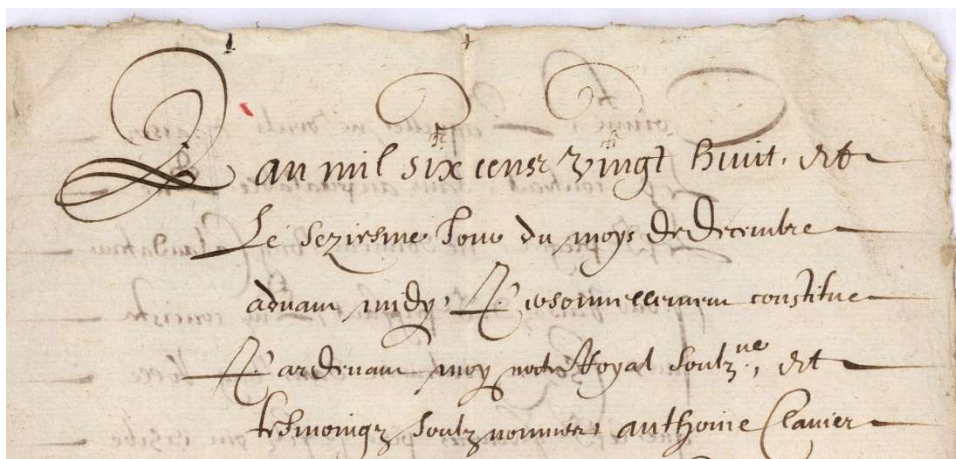 L'an mil six cens vingt huit, et
Le seziesme Jour du moys de decembre
advant midy, Personnellement constitue
Pardevant moy notre Royal soubz.ne, et
tesmoingz soubz nommes, anthoine Clavier